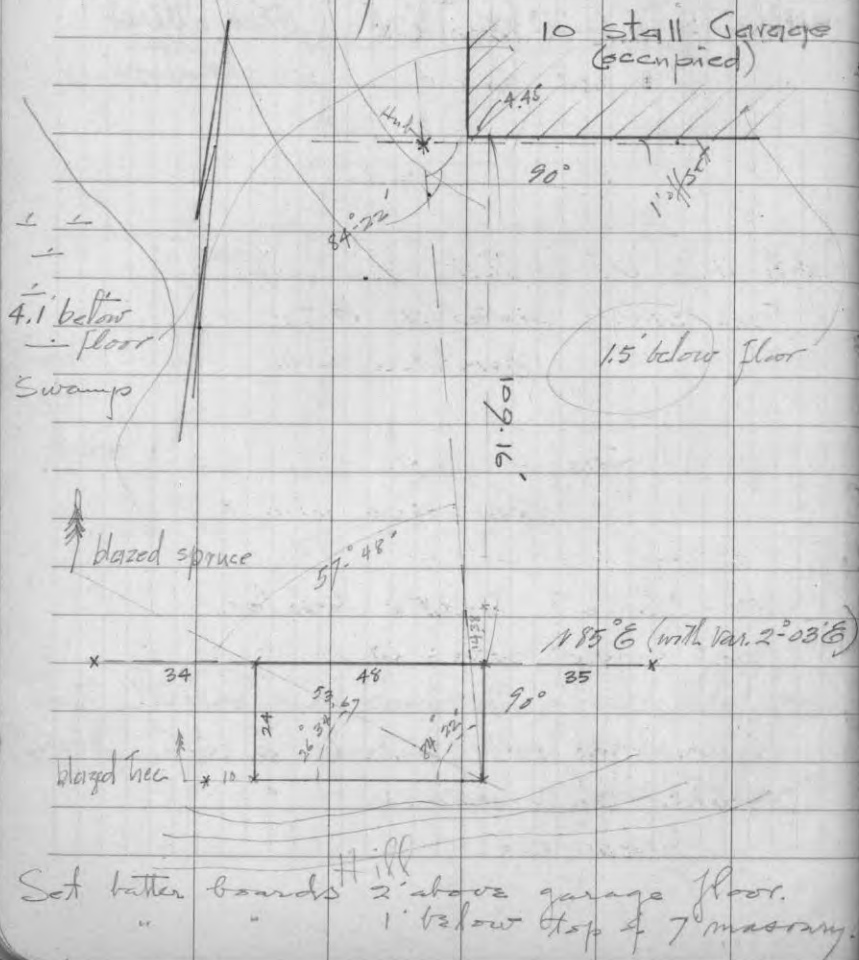 10 stall Garage
(occupied)
4.45
Hub
90°
84°-22'
4.1' below
floor
Swamp
1.5' below floor
109.16'
blazed spruce
57°48'
14.38
N85°E (with Var. 2°-03'E)
34 48 35
53.67
90°
24
26°34'
84°22'
blazed tree
10
Hill
Set batter boards 2' above garage floor.
" " 1' below top of masonry.